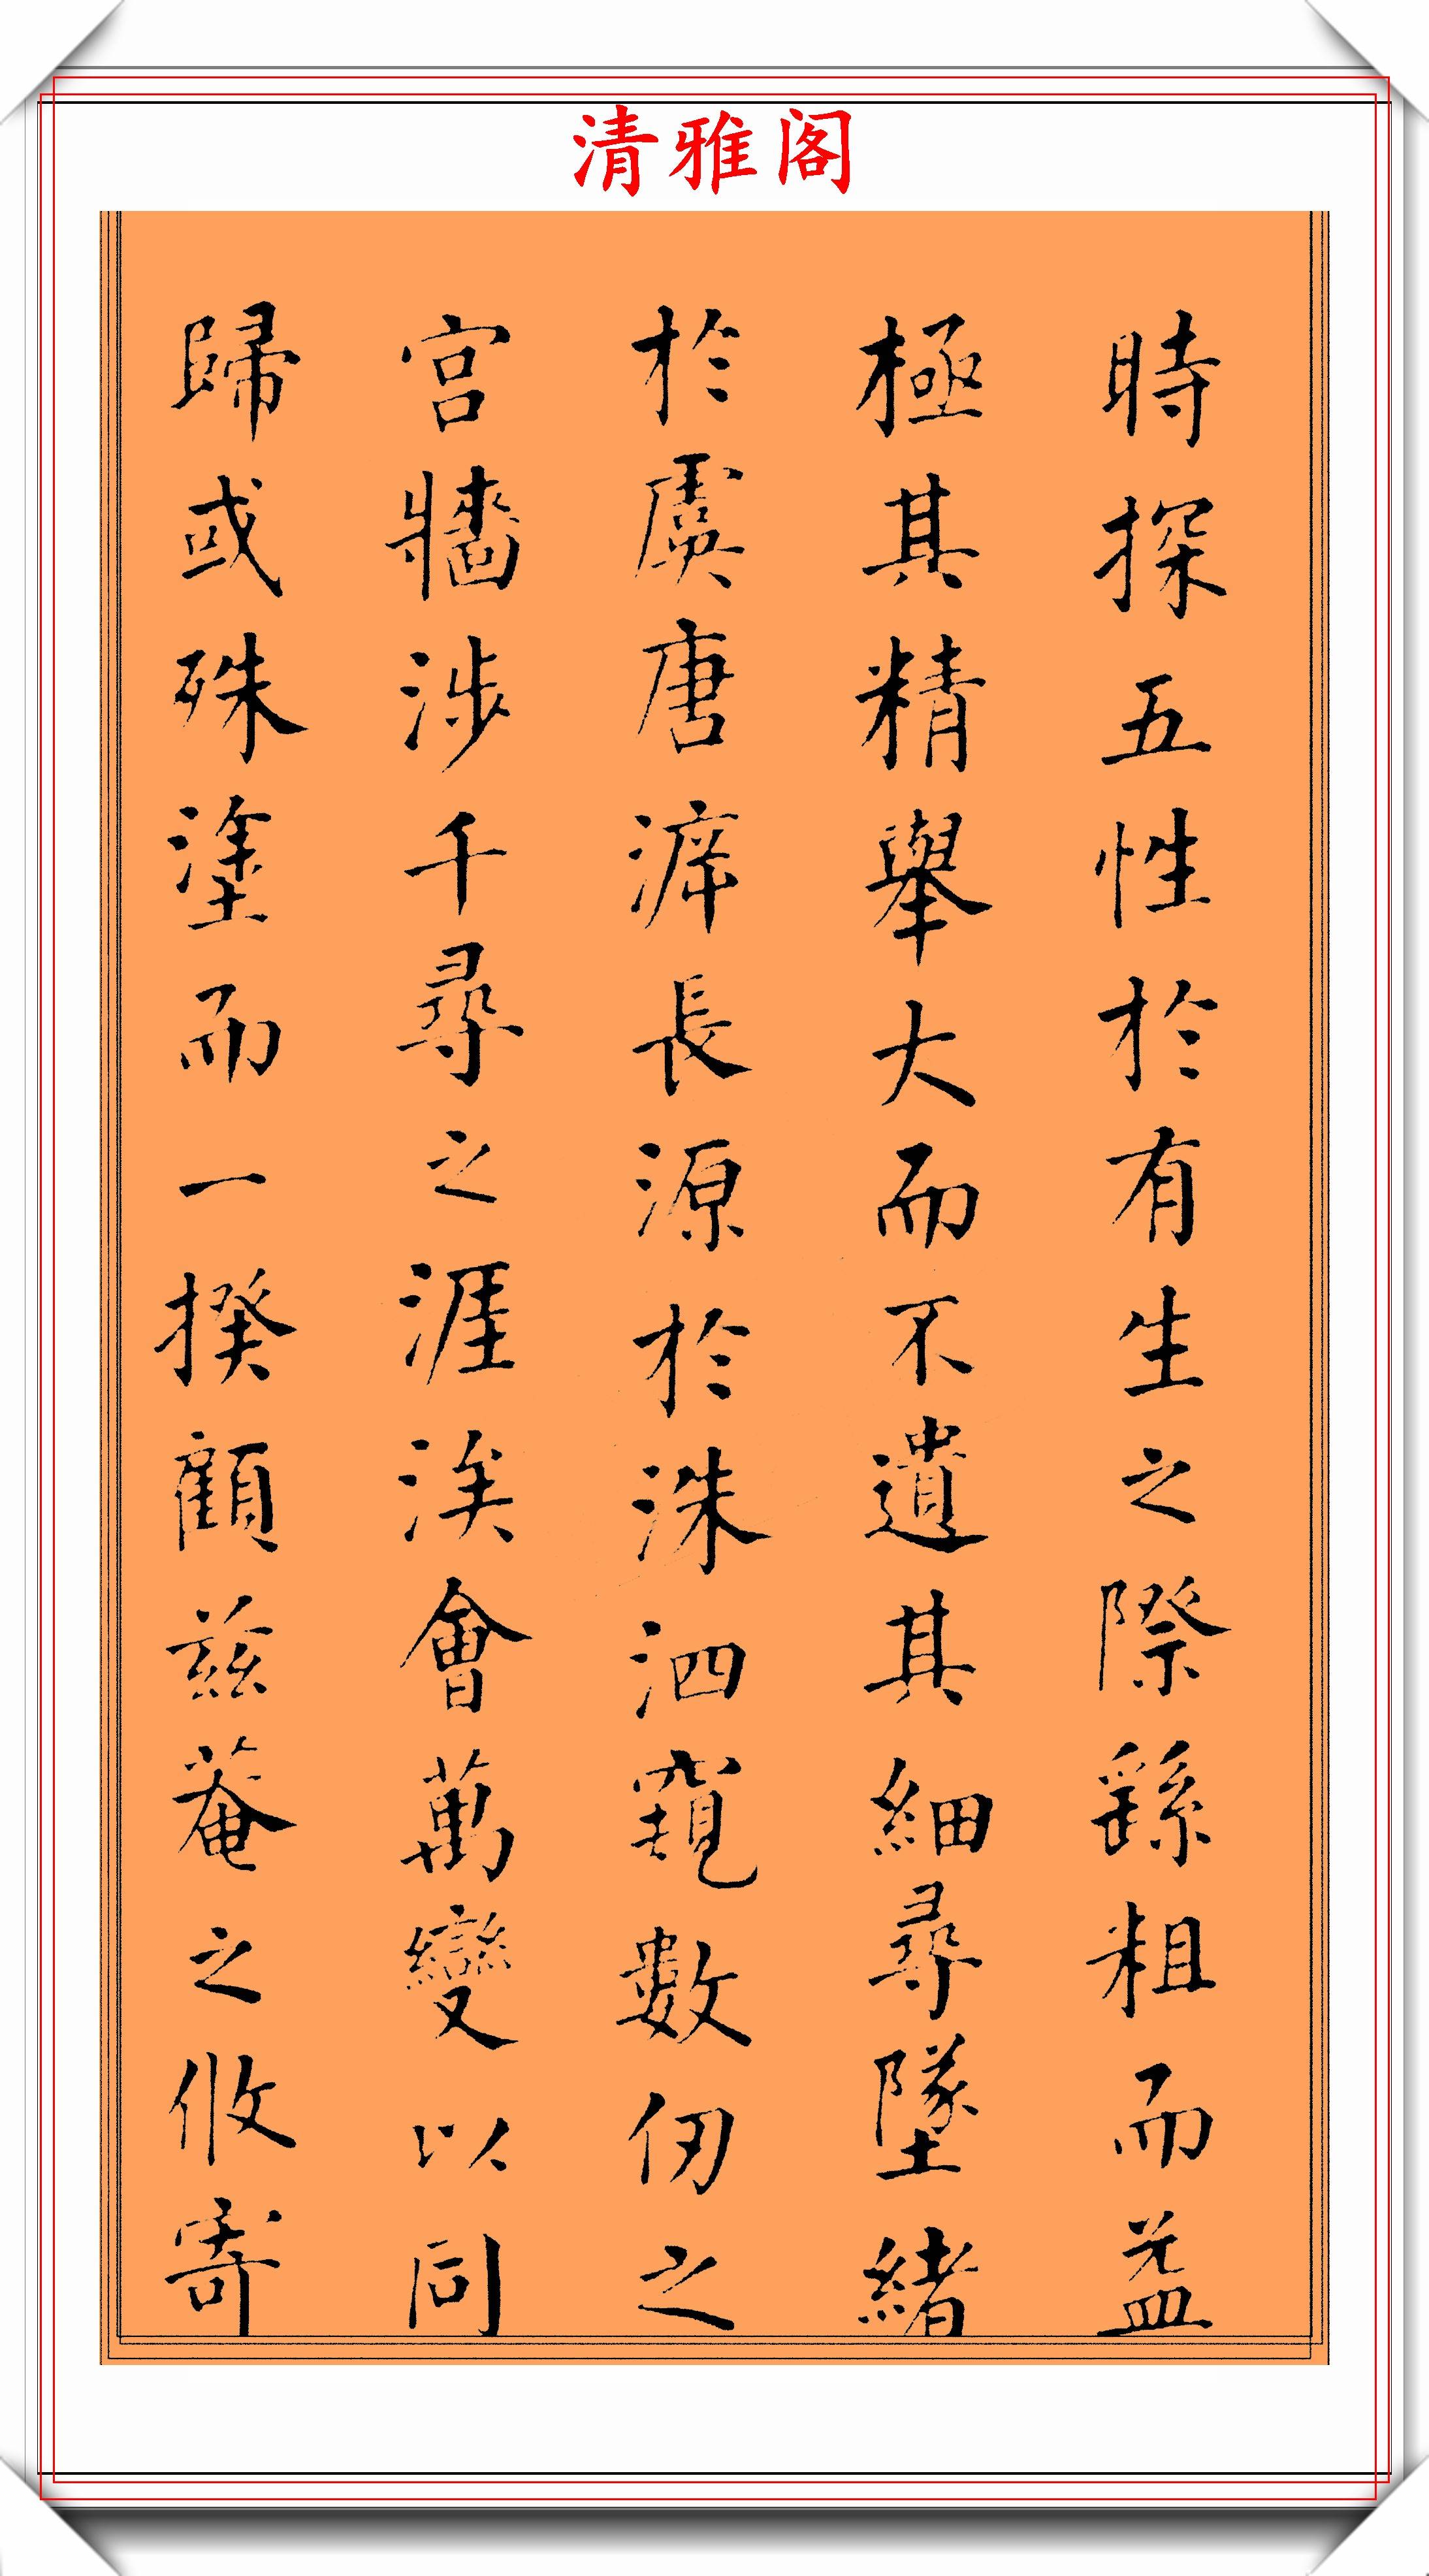 清雅阁
時探五性於有生之際繇粗而益
極其精舉大而不遺其細尋墜緒
於虞唐泝長源於洙泗窺數仞之
宫牆涉千尋之涯涘會萬變以同
歸或殊塗而一揆顧兹菴之攸寄